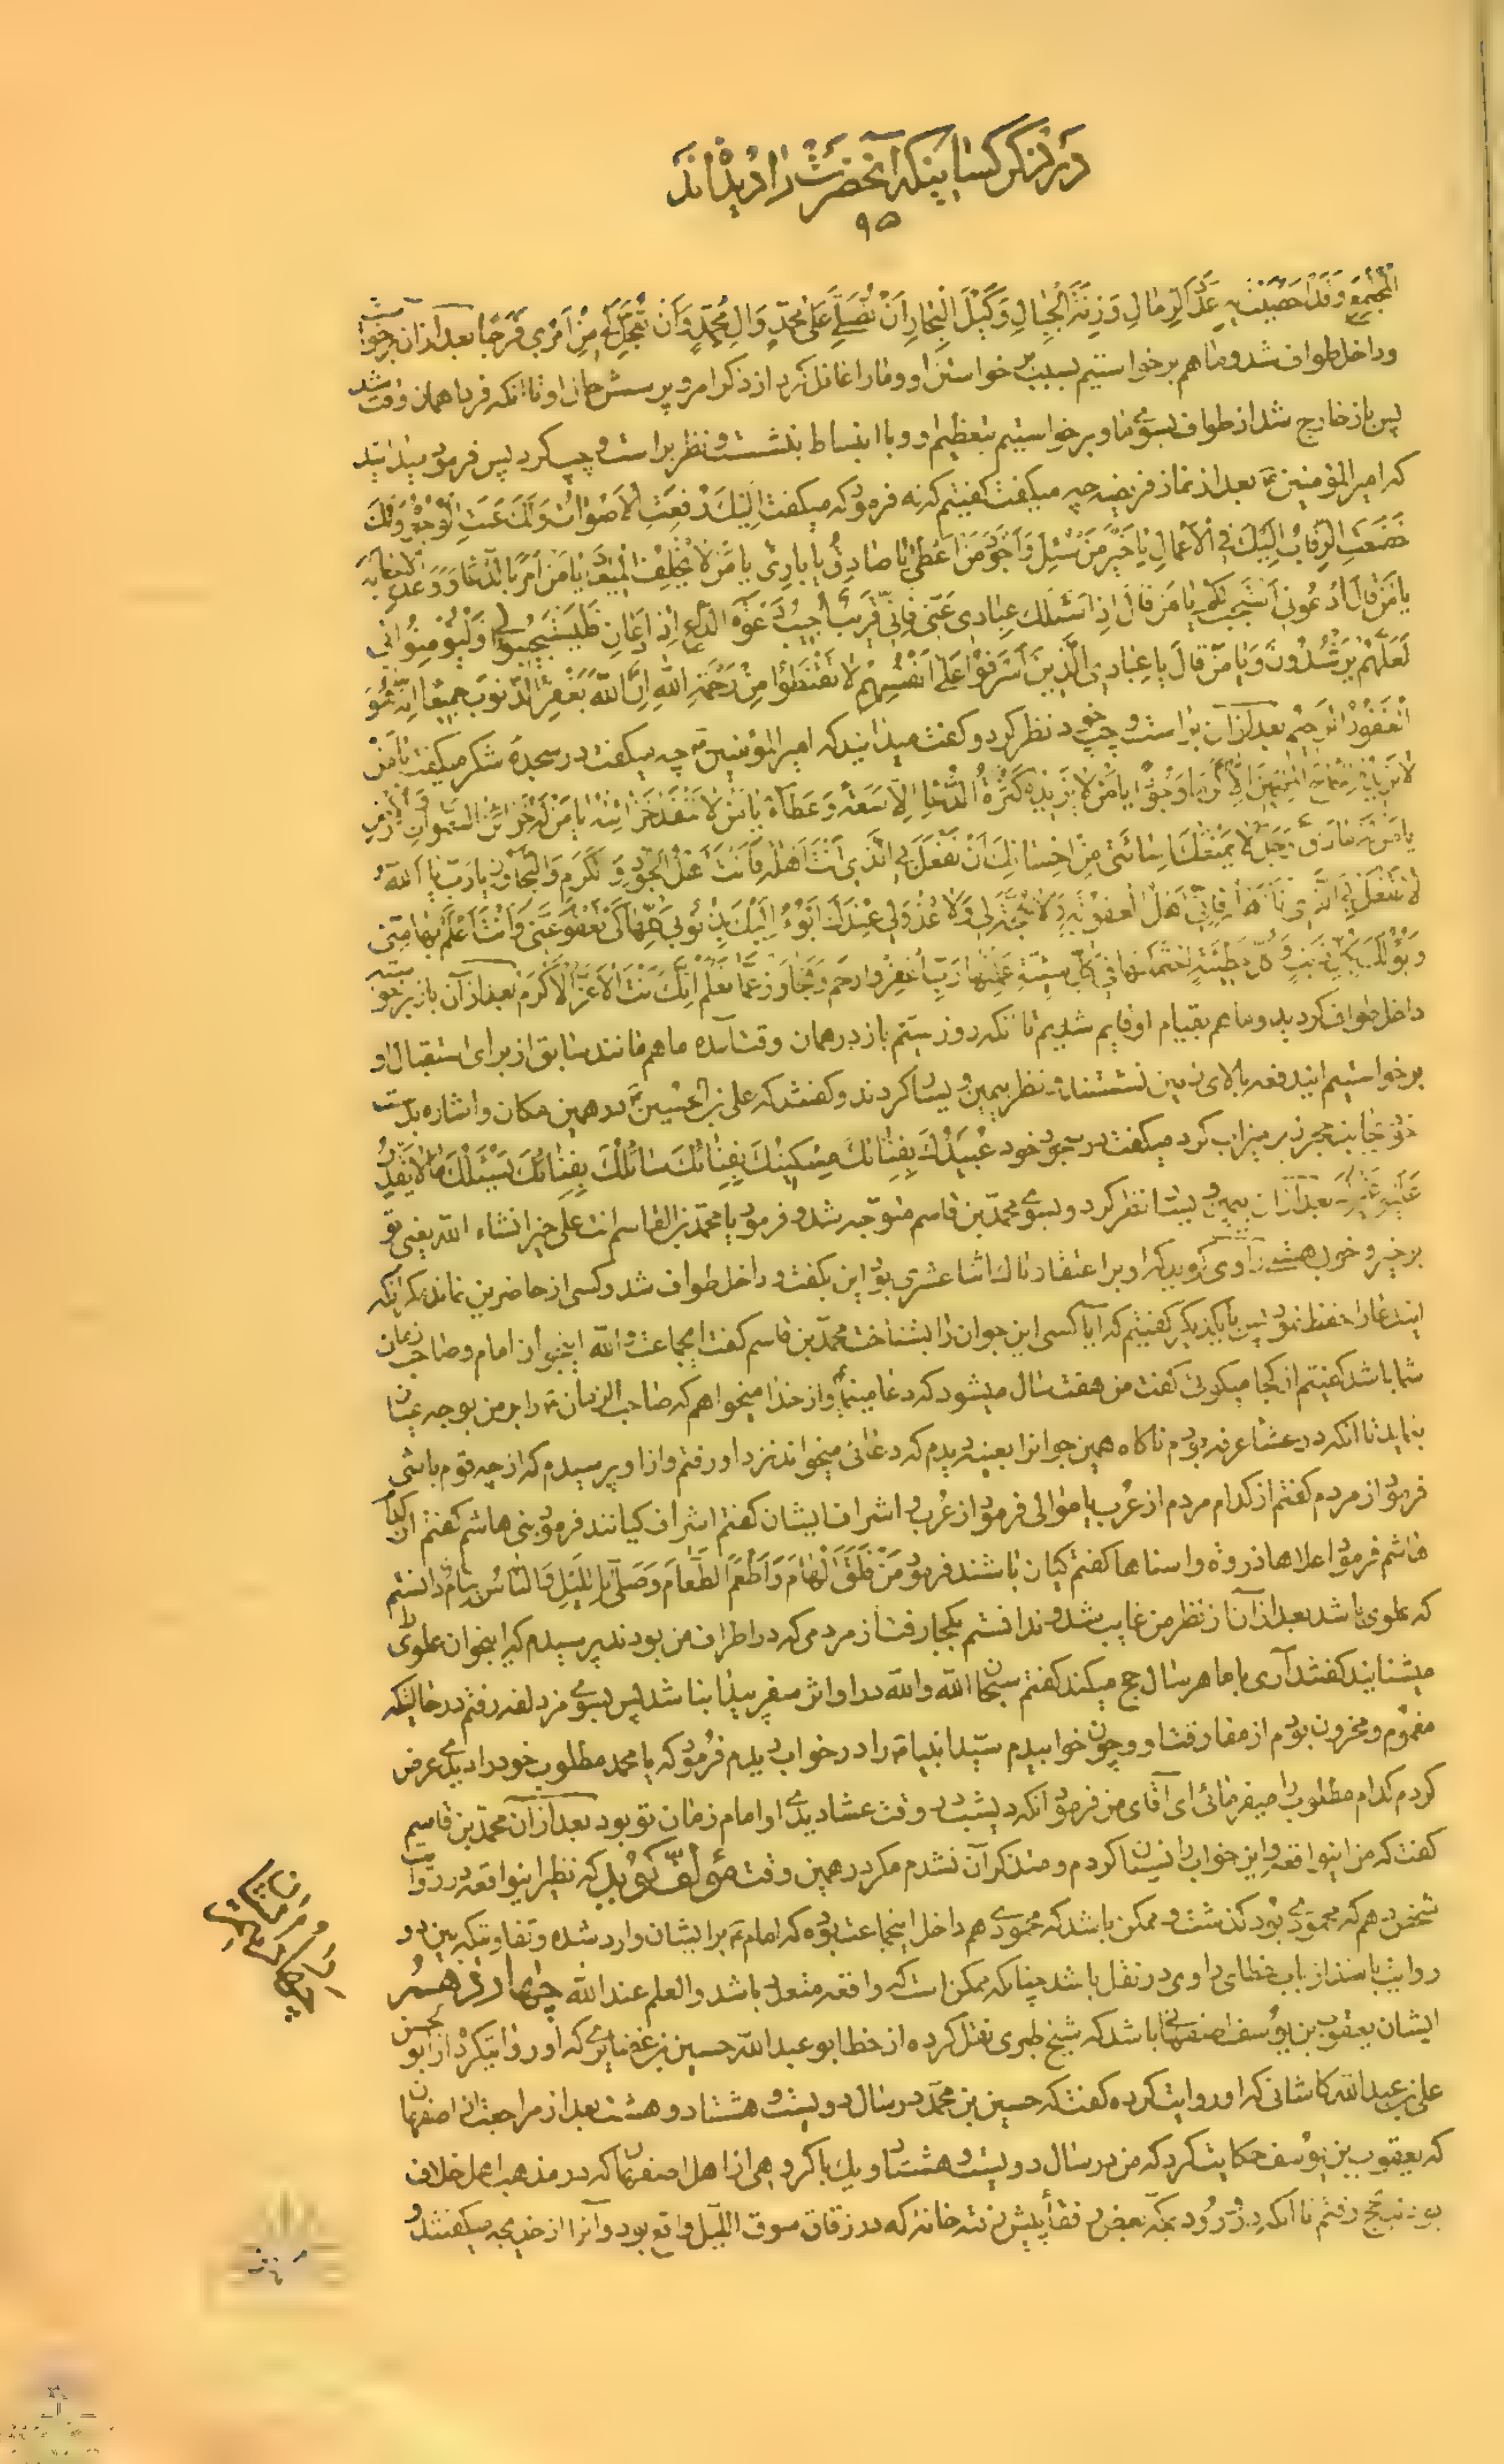 در ذکر کسانیکه آنحضرت را دیده‌اند
۹۵
الْمُجْتَمِعِ وَقَدْ اَحْصَيْتَ بِهِ عَدَدَ الرِّمالِ وَزِنَةَ الْجِبالِ وَكَيْلَ الْبِحارِ اَنْ تُصَلِّىَ عَلى مُحَمَّدٍ وَالِ مُحَمَّدٍ وَاَنْ تَجْعَلَ لِي مِنْ اَمْرِي فَرَجًا بعد از آن برخواست
وداخل طواف شد وما هم برخواستیم بسبب برخواستن او ومارا غافل کرد از ذکر امر و پرسش حال او تا آنکه فردا همان وقت شد
پس باز خارج شد از طواف بسوی ما و برخواستیم بتعظیم او و با انبساط بنشست و نظر براست و چپ کرد پس فرمود میدانید
که امیرالمؤمنین ع بعد از نماز فریضه چه میکفت کفتیم که نه فرمود که میکفت اِلَيْكَ رُفِعَتِ الْاَصْواتُ وَلَكَ عَنَتِ الْوُجُوهُ وَلَكَ
خَضَعَتِ الرِّقابُ اِلَيْكَ فِي الْاَعْمالِ ياخَيْرَ مَنْ سُئِلَ وَاَجْوَدَ مَنْ اَعْطى ياصادِقُ يابارِئُ يامَنْ لا يُخْلِفُ الْميعادَ يامَنْ اَمَرَ بِالدُّعاءِ وَوَعَدَ الْاِجابَةَ
يامَنْ قالَ اُدْعُوني اَسْتَجِبْ لَكُمْ يامَنْ قالَ اِذا سَئَلَكَ عِبادِي عَنّي فَاِنّي قَريبٌ اُجيبُ دَعْوَةَ الدّاعِ اِذا دَعانِ فَلْيَسْتَجيبُوا لي وَلْيُؤْمِنُوا بي
لَعَلَّهُمْ يَرْشُدُونَ وَيامَنْ قالَ ياعِبادِيَ الَّذينَ اَسْرَفُوا عَلى اَنْفُسِهِمْ لا تَقْنَطُوا مِنْ رَحْمَةِ اللهِ اِنَّ اللهَ يَغْفِرُ الذُّنُوبَ جَميعًا اِنَّهُ هُوَ
الْغَفُورُ الرَّحيمُ بعد از آن براست و چپ خود نظر کرد و کفت میدانید که امیرالمؤمنین ع چه میکفت در سجدۀ شکر میکفت يامَنْ
لا يَزيدُهُ اِلْحاحُ الْمُلِحّينَ اِلّا كَرَمًا وَجُودًا يامَنْ لا يَزيدُهُ كَثْرَةُ الدُّعاءِ اِلّا سَعَةً وَعَطاءً يامَنْ لا تَنْفَدُ خَزائِنُهُ يامَنْ لَهُ خَزائِنُ السَّمواتِ وَالْاَرْضِ
لا يَمْنَعُكَ اِسائَتي مِنْ اِحْسانِكَ اَنْ تَفْعَلَ بِي الَّذي اَنْتَ اَهْلُهُ فَاَنْتَ اَهْلُ الْجُودِ وَالْكَرَمِ وَالتَّجاوُزِ يارَبِّ يا اَللهُ
لا تَفْعَلْ بِيَ الَّذي اَنَا اَهْلُهُ فَاِنّي اَهْلُ الْعُقُوبَةِ وَلا حُجَّةَ لي وَلا عُذْرَ لي عِنْدَكَ اَبُوءُ اِلَيْكَ بِذُنُوبي كُلِّها كَيْ تَعْفُوَ عَنّي وَاَنْتَ اَعْلَمُ بِها مِنّي
وَاَبُوءُ لَكَ بِكُلِّ ذَنْبٍ وَكُلِّ خَطيئَةٍ وَكُلِّ سَيِّئَةٍ عَمِلْتُها رَبِّ اغْفِرْ وَارْحَمْ وَتَجاوَزْ عَمّا تَعْلَمُ اِنَّكَ اَنْتَ الْاَعَزُّ الْاَكْرَمُ بعد از آن باز برخواسته
داخل طواف کردید وما هم بقیام او قایم شدیم تا آنکه روز سیّم باز در همان وقت آمده ما هم مانند سابق از برای استقبال او
برخواستیم ایندفعه بالای زمین نشستند و نظر بیمین و یسار کردند و کفتند که علی بن الحسین ع در همین مکان و اشاره بدست
خود بجانب حجر زیر میزاب کرد میکفت در سجود خود عُبَيْدُكَ بِفِنائِكَ مِسْكينُكَ بِفِنائِكَ سائِلُكَ بِفِنائِكَ يَسْئَلُكَ مالا يَقْدِرُ
عَلَيْهِ غَيْرُكَ بعد از آن بیمین و یسار نظر کرد و بسوی محمّد بن قاسم متوجه شد و فرمود یا محمّد بن القاسم انت علی خیر انشاء الله یعنی تو
بر خیر و خوبی هستی راوی کوید که او بر اعتقاد ناك اثنا عشری بود این بکفت و داخل طواف شد و کسی از حاضرین نماند مکر آنکه
ایندعا را حفظ نمود پس بایکدیکر کفتیم که آیا کسی این جوان را بشناخت محمّد بن قاسم کفت ایجماعت والله اینجوان امام وصاحب زمان
شما باشد کفتیم از کجا میکوئی کفت من هفت سال میشود که دعا مینمایم و از خدا میخواهم که صاحب الزمان ع را بر من بوجه عیان
بنماید تا آنکه در عشاء عرفه بودم ناکاه همین جوانرا بعینه دیدم که دعائی میخواند نزد او رفتم و از او پرسیدم که از چه قوم باشی
فرمود از مردم کفتم از کدام مردم از عرب یا موالی فرمود از عرب و اشراف ایشان کفتم اشراف کیانند فرمود بنی هاشم کفتم از کدام
هاشم فرمود اعلاها ذروة و اسناها کفتم کیان باشند فرمود مَنْ فَلَقَ الْهامَ وَاَطْعَمَ الطَّعامَ وَصَلّى بِاللَّيْلِ وَالنّاسُ نِيامٌ دانستم
که علوی باشد بعد از آن از نظر من غایب شد و ندانستم بکجا رفت از مردمی که در اطراف من بودند پرسیدم که اینجوان علوی را
میشناسید کفتند آری با ما هر سال حج میکند کفتم سبحان الله والله در او اثر سفر پیدا نباشد پس بسوی مزدلفه رفتم در حالیکه
مغموم و محزون بودم از مفارقت او و چون خوابیدم سیّد انبیا ص را در خواب دیدم فرمود که یا محمد مطلوب خود را دیدی عرض
کردم کدام مطلوب را میفرمائی ای آقای من فرمود آنکه دیشب در وقت عشا دیدی او امام زمان تو بود بعد از آن محمّد بن قاسم
کفت که من اینواقعه و این خواب را نسیان کردم و متذکر آن نشدم مکر در همین وقت مؤلّف کوید که نظیر اینواقعه در روایت
شخص دهم که محمودی بود کذشت و ممکن باشد که محمودی هم داخل اینجماعت بوده که امام ع بر ایشان وارد شده و تفاوتیکه بین دو
روایت باشد از باب خطای راوی در نقل باشد چنانکه ممکن است که واقعه متعدد باشد والعلم عند الله چهاردهم
ایشان یعقوب بن یوسف اصفهانی باشد که شیخ طبری نقل کرده از خط ابو عبدالله حسین بن غضایری که او روایتکرد از ابو الحسن
علی بن عبدالله کاشانی که او روایت کرده کفت که حسین بن محمّد در سال دویست و هشتاد و هشت بعد از مراجعت از اصفهان
که یعقوب بن یوسف حکایت کرد که من در سال دویست و هشتاد و یك با کروهی از اهل اصفهان که در مذهب اهل خلاف
بودند بحج رفتم تا آنکه در ورود بمکّه بعض رفقا پیش رفته خانۀ که در زقاق سوق اللّیل واقع بود و آنرا از خدیجه میکفتند